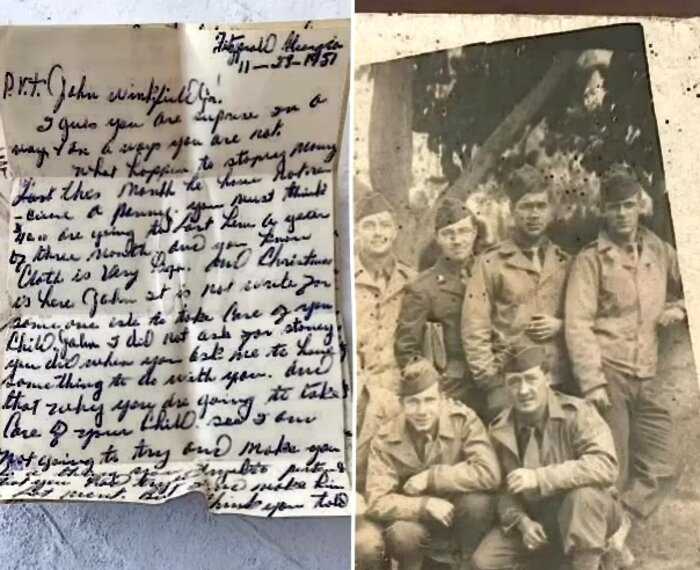 Fitzgerald Georgia
11-23-1951
P.V.T. John Winkfield Jr.
I gues you are suprise in a
way & in a ways you are not
What happen to stoney money
Last this month he have not re
-ceive a penny. you must think
you are going to last him a year
by three month, and you know
Cloth is Very high. And Christmas
is here John it is not write for
some one else to take Care of you
Child. John I did not ask for stoney
you did when you ask me to have
something to do with you. And
that why you are going to take
Care of your Child. see I am
not going to try and make you
that you not try
think you told